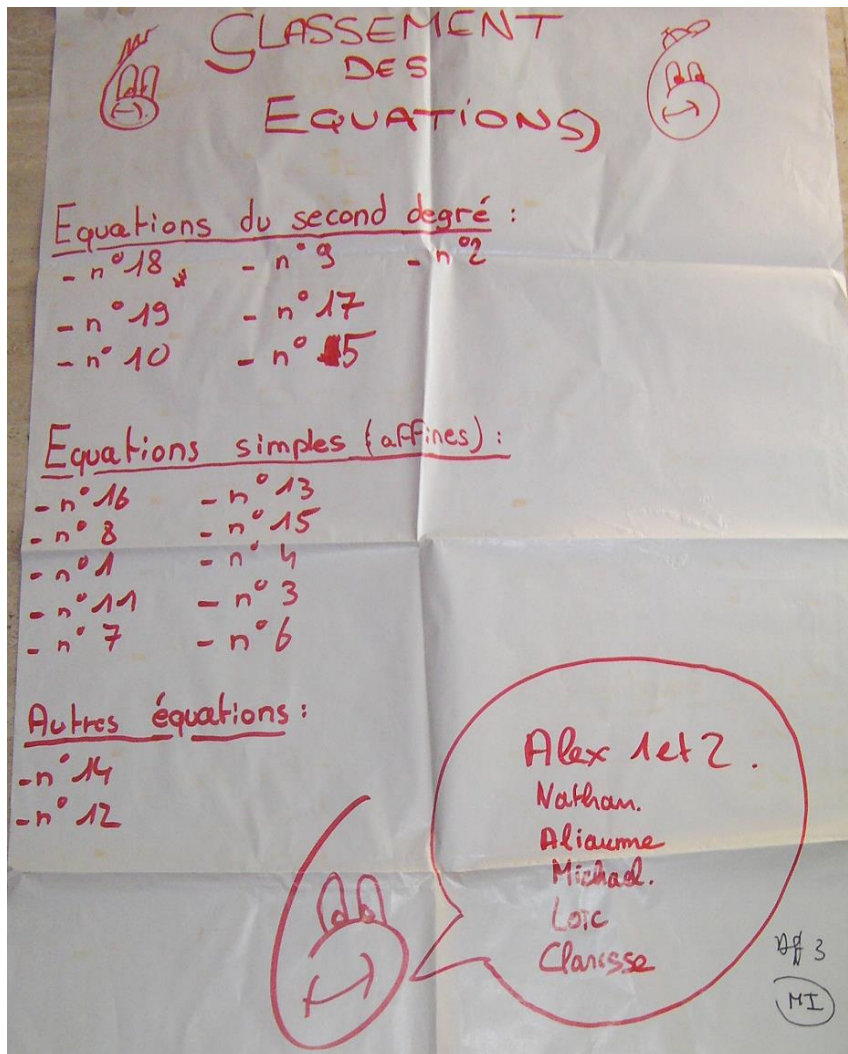 CLASSEMENT
DES
EQUATIONS
Equations du second degré :
- n°18 - n°9 - n°2
- n°19 - n°17
- n°10 - n°5
Equations simples (affines) :
- n°16 - n°13
- n°8 - n°15
- n°1 - n°4
- n°11 - n°3
- n°7 - n°6
Autres équations :
- n°14
- n°12
Alex 1et 2.
Nathan.
Aliaume
Michael.
Loïc
Clarisse
3
MI